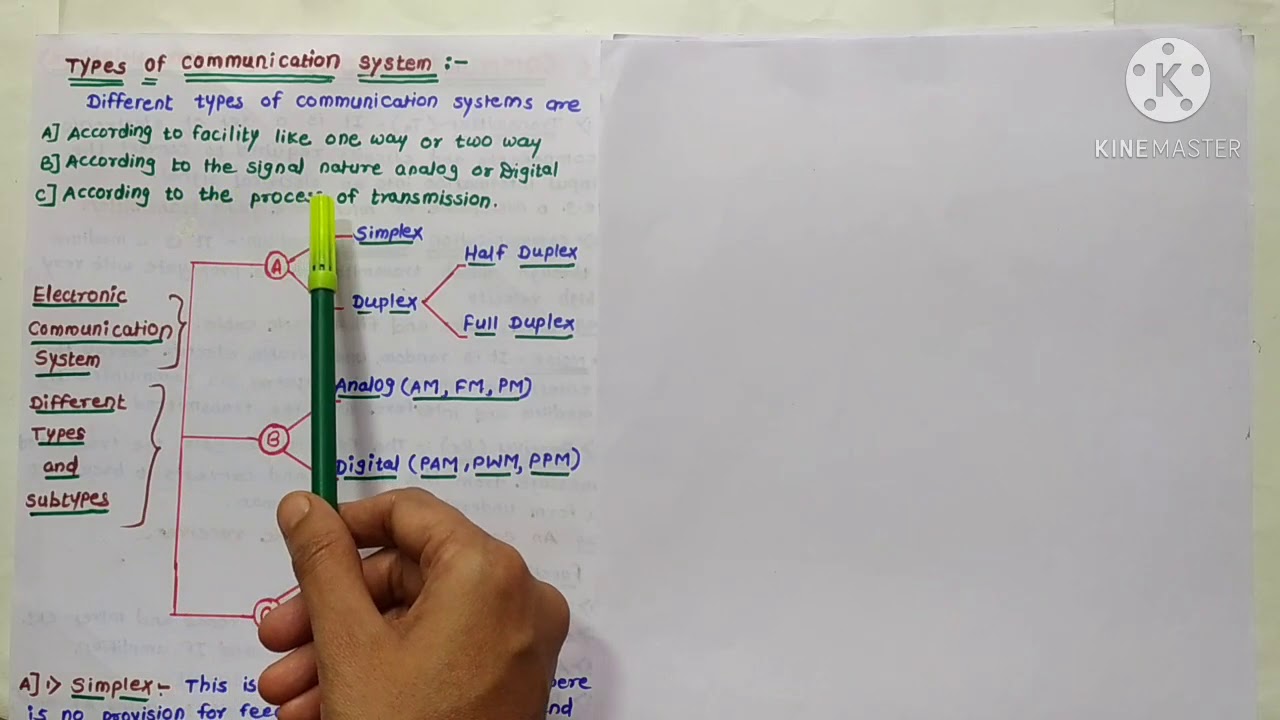 Types of communication system :-
Different types of communication systems are
A] According to facility like one way or two way
B] According to the signal nature analog or Digital
C] According to the process of transmission.
A
Simplex
Duplex
Half Duplex
Full Duplex
Electronic
Communication
System
Different
Types
and
subtypes
B
Analog (AM, FM, PM)
Digital (PAM, PWM, PPM)
A] i> Simplex :- This is
is no provision for
K
KINEMASTER